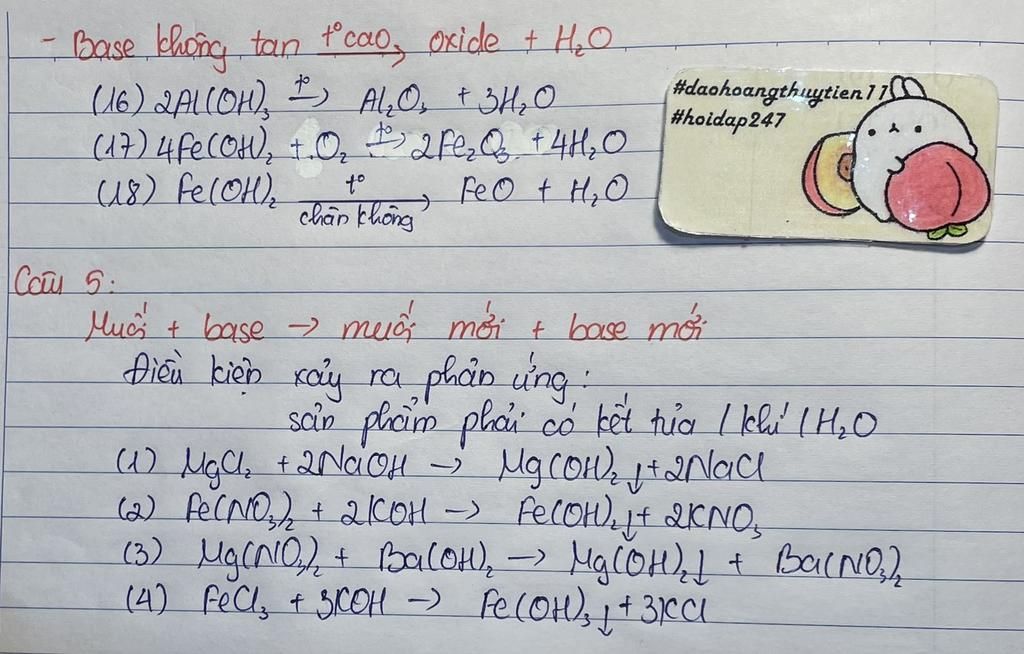 - Base không tan t° cao → oxide + H₂O
(16) 2Al(OH)₃ t° → Al₂O₃ + 3H₂O
(17) 4Fe(OH)₂ + O₂ t° → 2Fe₂O₃ + 4H₂O
(18) Fe(OH)₂ t° → chân không FeO + H₂O
#daohoangthuytien11
#hoidap247
Câu 5:
Muối + base → muối mới + base mới
Điều kiện xảy ra phản ứng:
sản phẩm phải có kết tủa / khí / H₂O
(1) MgCl₂ + 2NaOH → Mg(OH)₂↓ + 2NaCl
(2) Fe(NO₃)₂ + 2KOH → Fe(OH)₂↓ + 2KNO₃
(3) Mg(NO₃)₂ + Ba(OH)₂ → Mg(OH)₂↓ + Ba(NO₃)₂
(4) FeCl₃ + 3KOH → Fe(OH)₃↓ + 3KCl